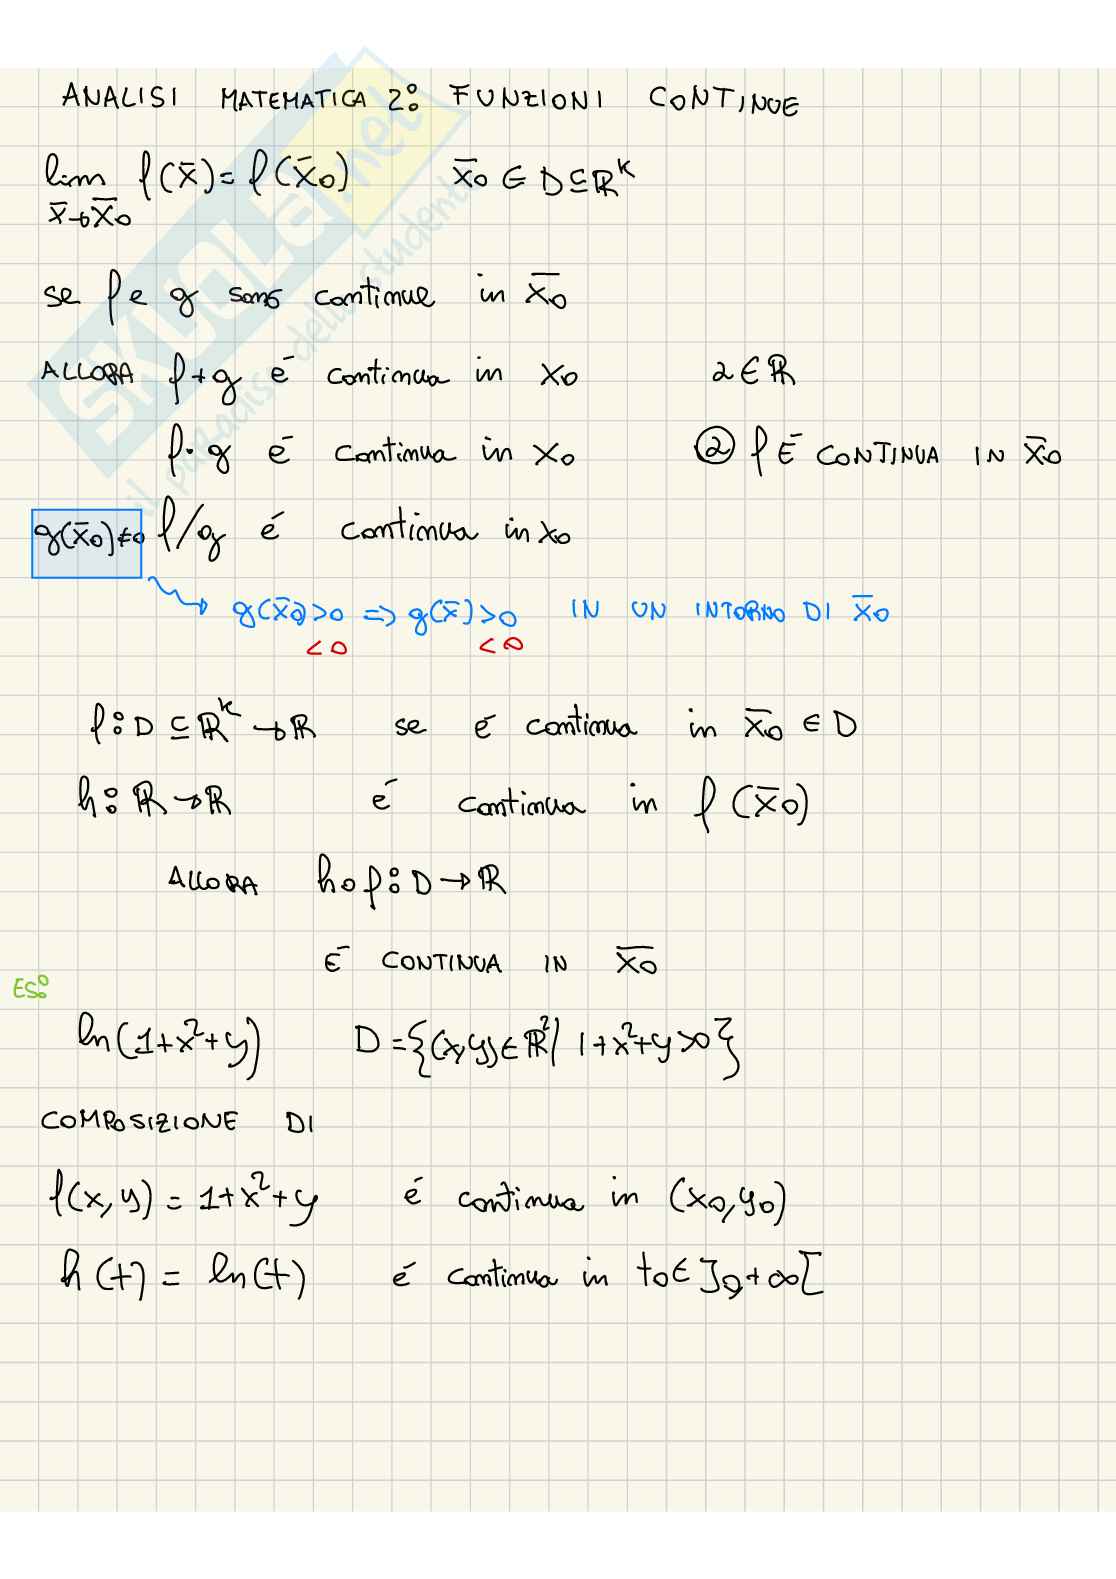 ANALISI MATEMATICA 2: FUNZIONI CONTINUE
lim f(x̄) = f(x̄0) x̄0 ∈ D ⊆ ℝ^k
x̄→x̄0
se f e g sono continue in x̄0
ALLORA f+g é continua in x0 2 ∈ ℝ
f·g é continua in x0 ② f É CONTINUA IN x̄0
g(x̄0)≠0 f/g é continua in x0
g(x̄0)>0 => g(x̄)>0 IN UN INTORNO DI x̄0
<0 <0
f: D ⊆ ℝ^k → ℝ se é continua in x̄0 ∈ D
h: ℝ→ℝ é continua in f(x̄0)
ALLORA h∘f: D → ℝ
É CONTINUA IN x̄0
ES:
ln(1+x²+y) D = {(x,y) ∈ ℝ² | 1+x²+y>0}
COMPOSIZIONE DI
f(x,y) = 1+x²+y é continua in (x0,y0)
h(t) = ln(t) é continua in t0 ∈ ]0,+∞[
SKUOLA.net
il paradiso dello studente